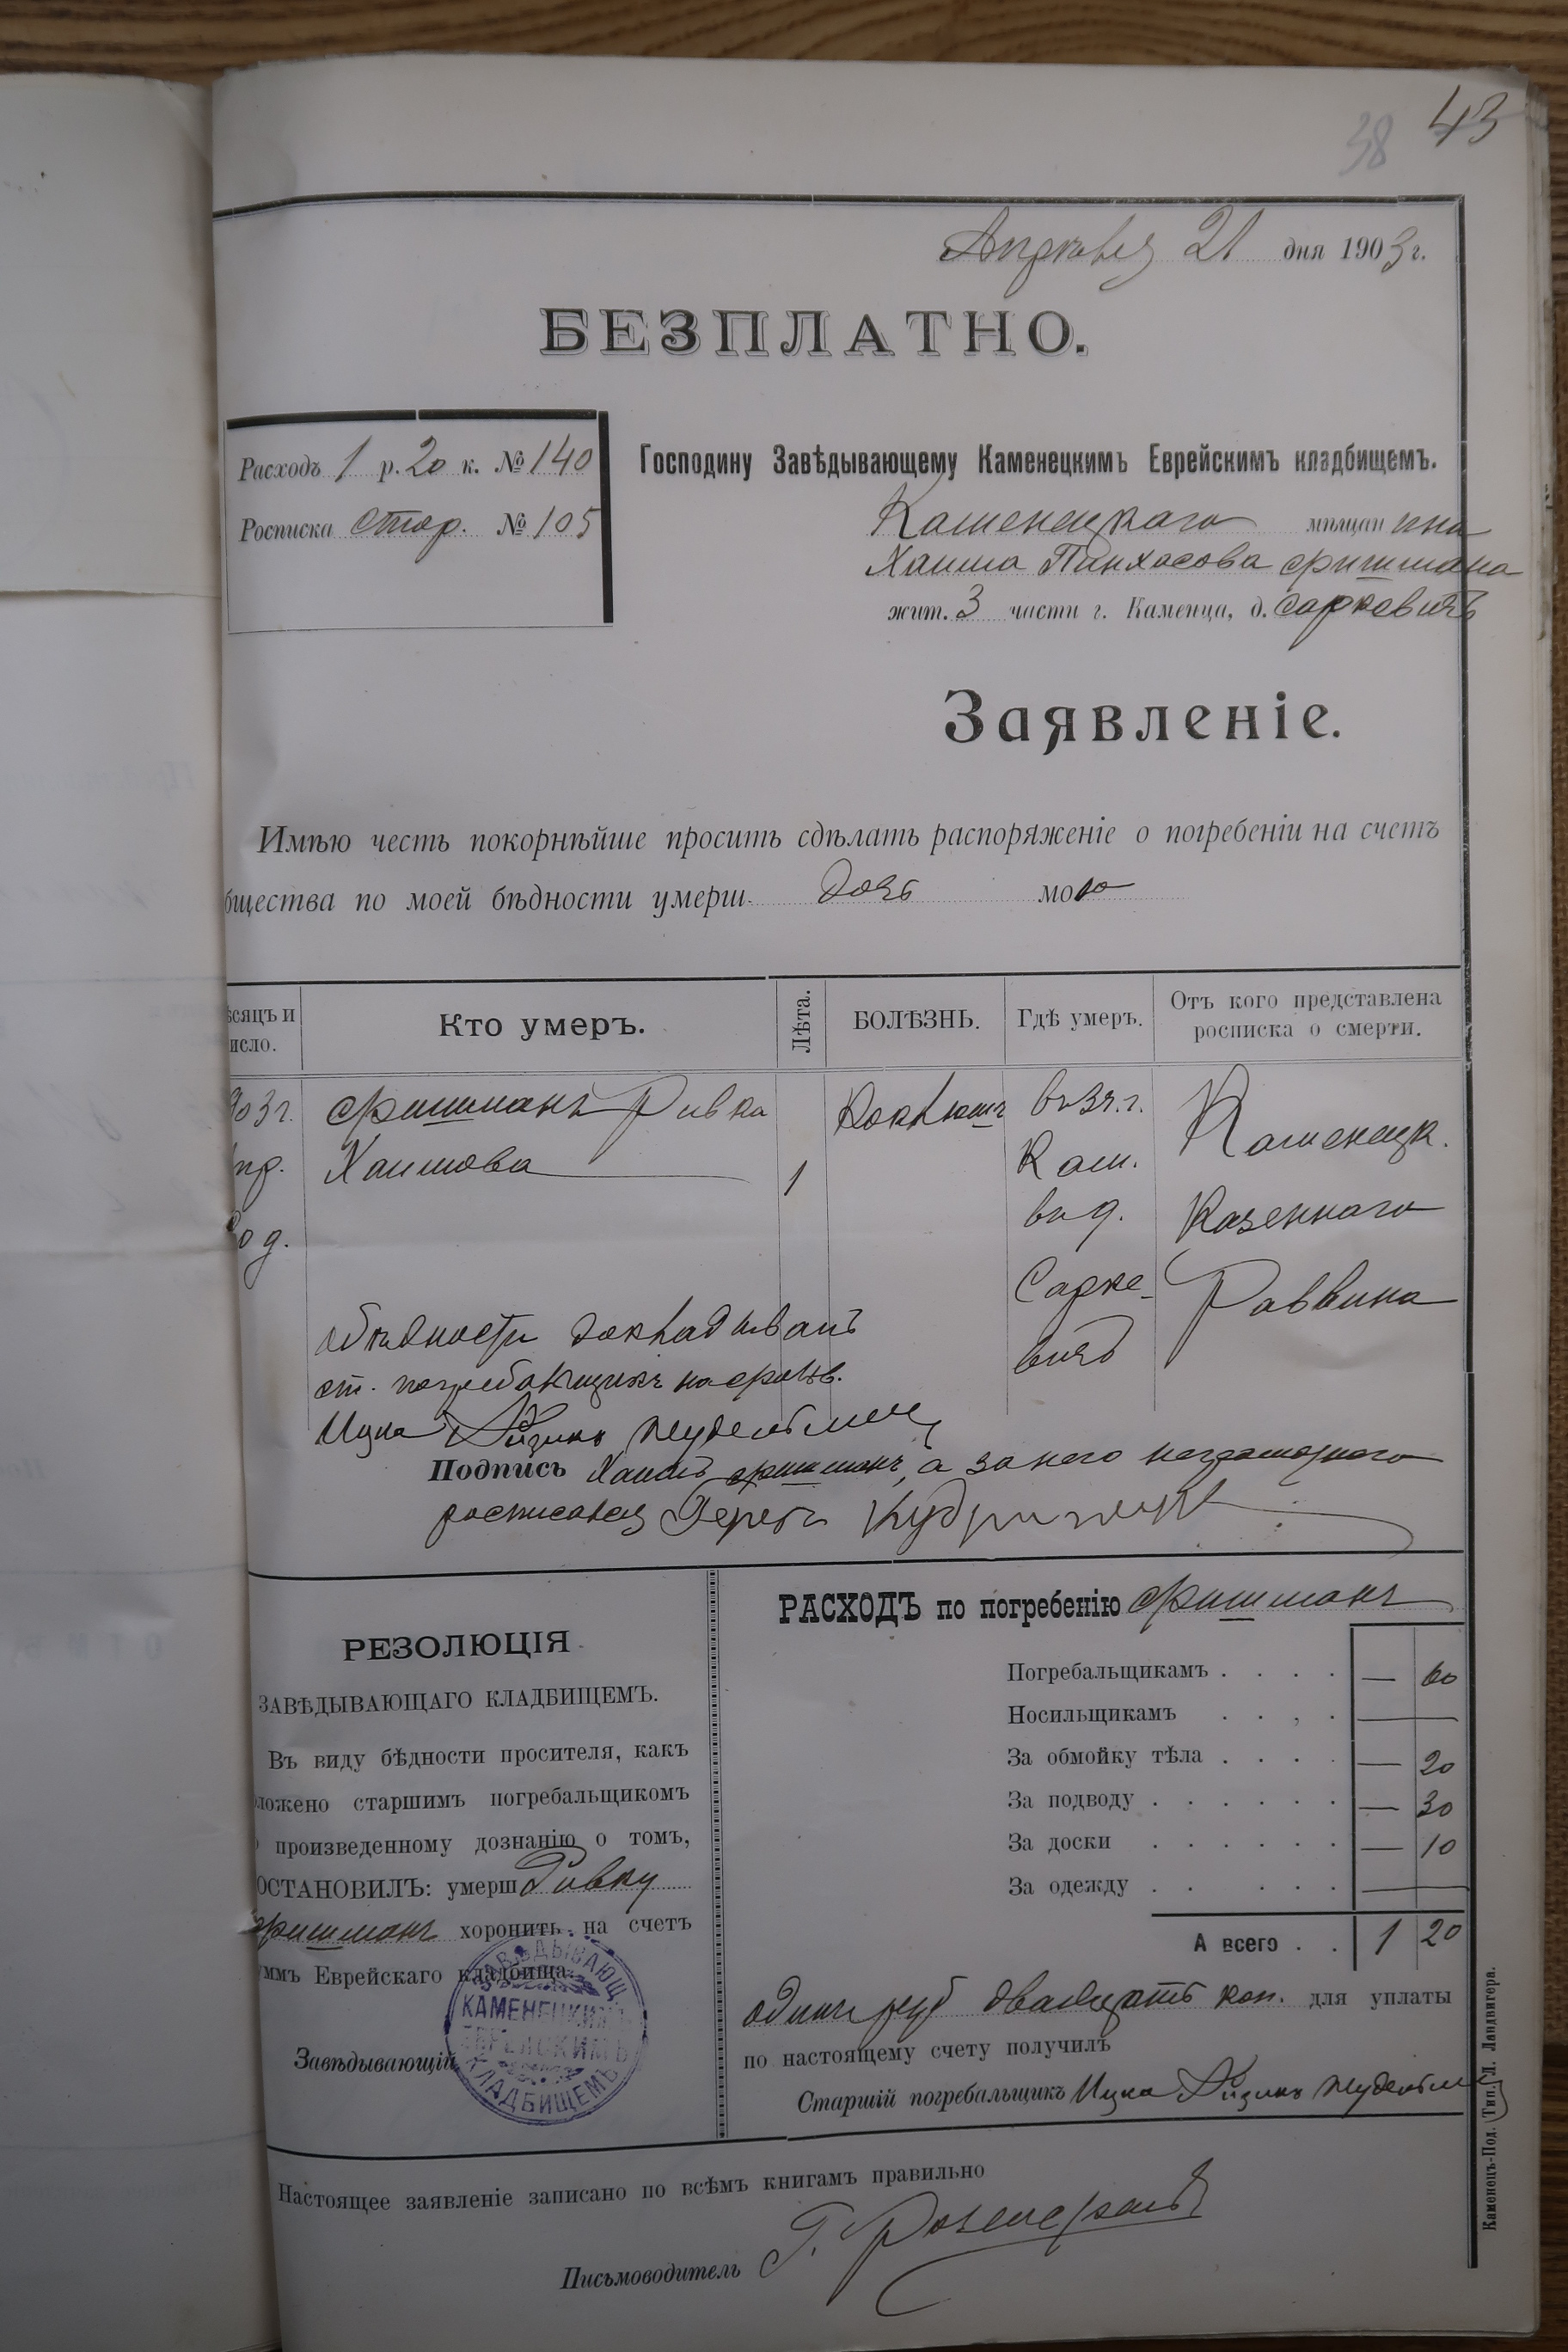 43
38
Апрѣля 21 дня 1903 г.
БЕЗПЛАТНО.
Расходъ 1 р. 20 к. № 140
Росписка стор. № 105
Господину Завѣдывающему Каменецкимъ Еврейскимъ кладбищемъ.
Каменецкаго мѣщанина
Хаима Пинхасова Фришмана
жит. 3 части г. Каменца, д. Саркевичъ
Заявленіе.
Имѣю честь покорнѣйше просить сдѣлать распоряженіе о погребеніи на счетъ
бщества по моей бѣдности умерш. дочь мою
ѣсяцъ и
исло.
Кто умеръ.
Лѣта.
БОЛѢЗНЬ.
Гдѣ умеръ.
Отъ кого представлена
росписка о смерти.
903 г.
пр.
20 д.
Фришманъ Ривка
Хаимова
1
Коклюшъ
въ 3 ч. г.
Кам.
въ д.
Сарке-
вичъ
Каменецк.
Казеннаго
Раввина
обѣдности докладывалъ
ст. погребальщикъ
Ицка Айзикъ
Подпись Хаимъ Фришманъ, а за него неграмотнаго
росписался Герсъ
РЕЗОЛЮЦІЯ
ЗАВѢДЫВАЮЩАГО КЛАДБИЩЕМЪ.
Въ виду бѣдности просителя, какъ
ложено старшимъ погребальщикомъ
о произведенному дознанію о томъ,
ОСТАНОВИЛЪ: умерш Ривку
Фришманъ хоронить на счетъ
уммъ Еврейскаго кладбища.
Завѣдывающій
ЗАВѢДЫВАЮЩ
КАМЕНЕЦКИМЪ
ЕВРЕЙСКИМЪ
КЛАДБИЩЕМЪ
РАСХОДЪ по погребенію Фришманъ
Погребальщикамъ . . . . — 60
Носильщикамъ . . , . —
За обмойку тѣла . . . . — 20
За подводу . . . . . . — 30
За доски . . . . . . — 10
За одежду . . . . . . —
А всего . . 1 20
Одинъ руб двадцать коп. для уплаты
по настоящему счету получилъ
Старшій погребальщикъ Ицка Айзикъ
Настоящее заявленіе записано по всѣмъ книгамъ правильно
Письмоводитель Г.
Каменецъ-Под. Тип. Л. Ландвигера.